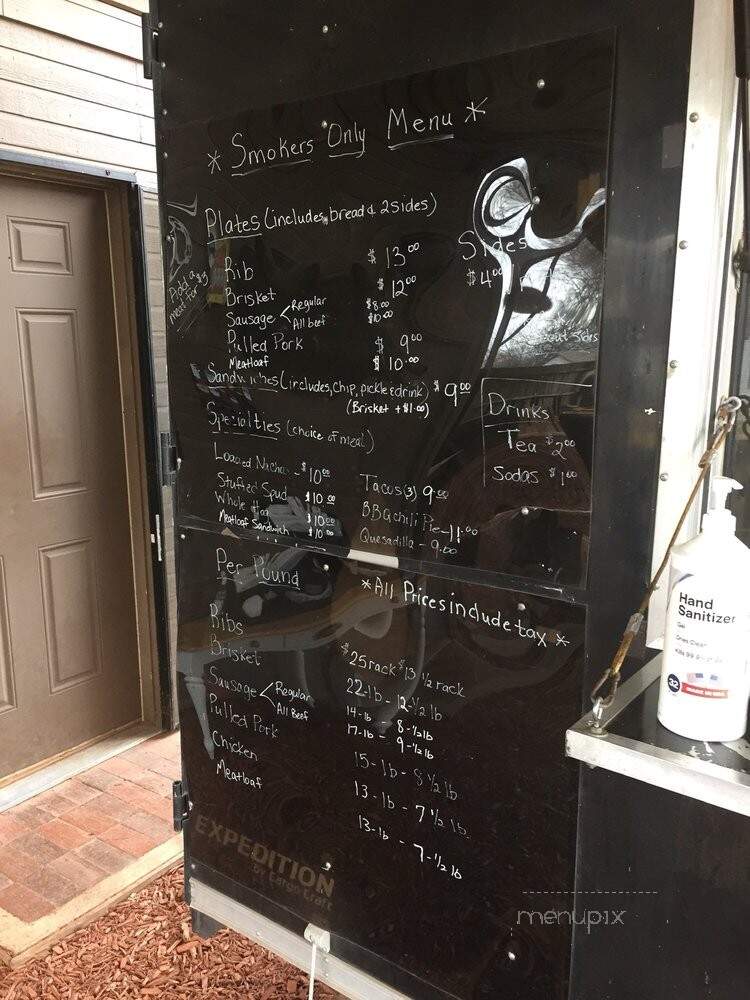 * Smokers Only Menu *
Plates (includes, bread & 2 sides)
Add a meat for $3
Rib $13.00
Brisket $12.00
Sausage < Regular $8.00
All beef $10.00
Pulled Pork $9.00
Meatloaf $10.00
Sides
$4.00
Sandwiches (includes, chip, pickle & drink) $9.00
(Brisket + $1.00)
Drinks
Tea $2.00
Sodas $1.00
Specialties (choice of meat)
Loaded Nachos - $10.00
Stuffed Spud $10.00
Whole $10.00
Meatloaf Sandwich $10.00
Tacos (3) 9.00
BBQ chili Pie - 11.00
Quesadilla - 9.00
Per Pound
*All Prices include tax *
Ribs $25 rack $13 1/2 rack
Brisket 22-lb - 12-1/2 lb
Sausage < Regular 14-lb - 8-1/2 lb
All Beef 17-lb - 9-1/2 lb
Pulled Pork 15-lb - 8 1/2 lb
Chicken 13-lb - 7 1/2 lb
Meatloaf 13-lb - 7-1/2 lb
EXPEDITION
by Cargo Craft
Hand
Sanitizer
Gel
32
MADE IN USA
menupix